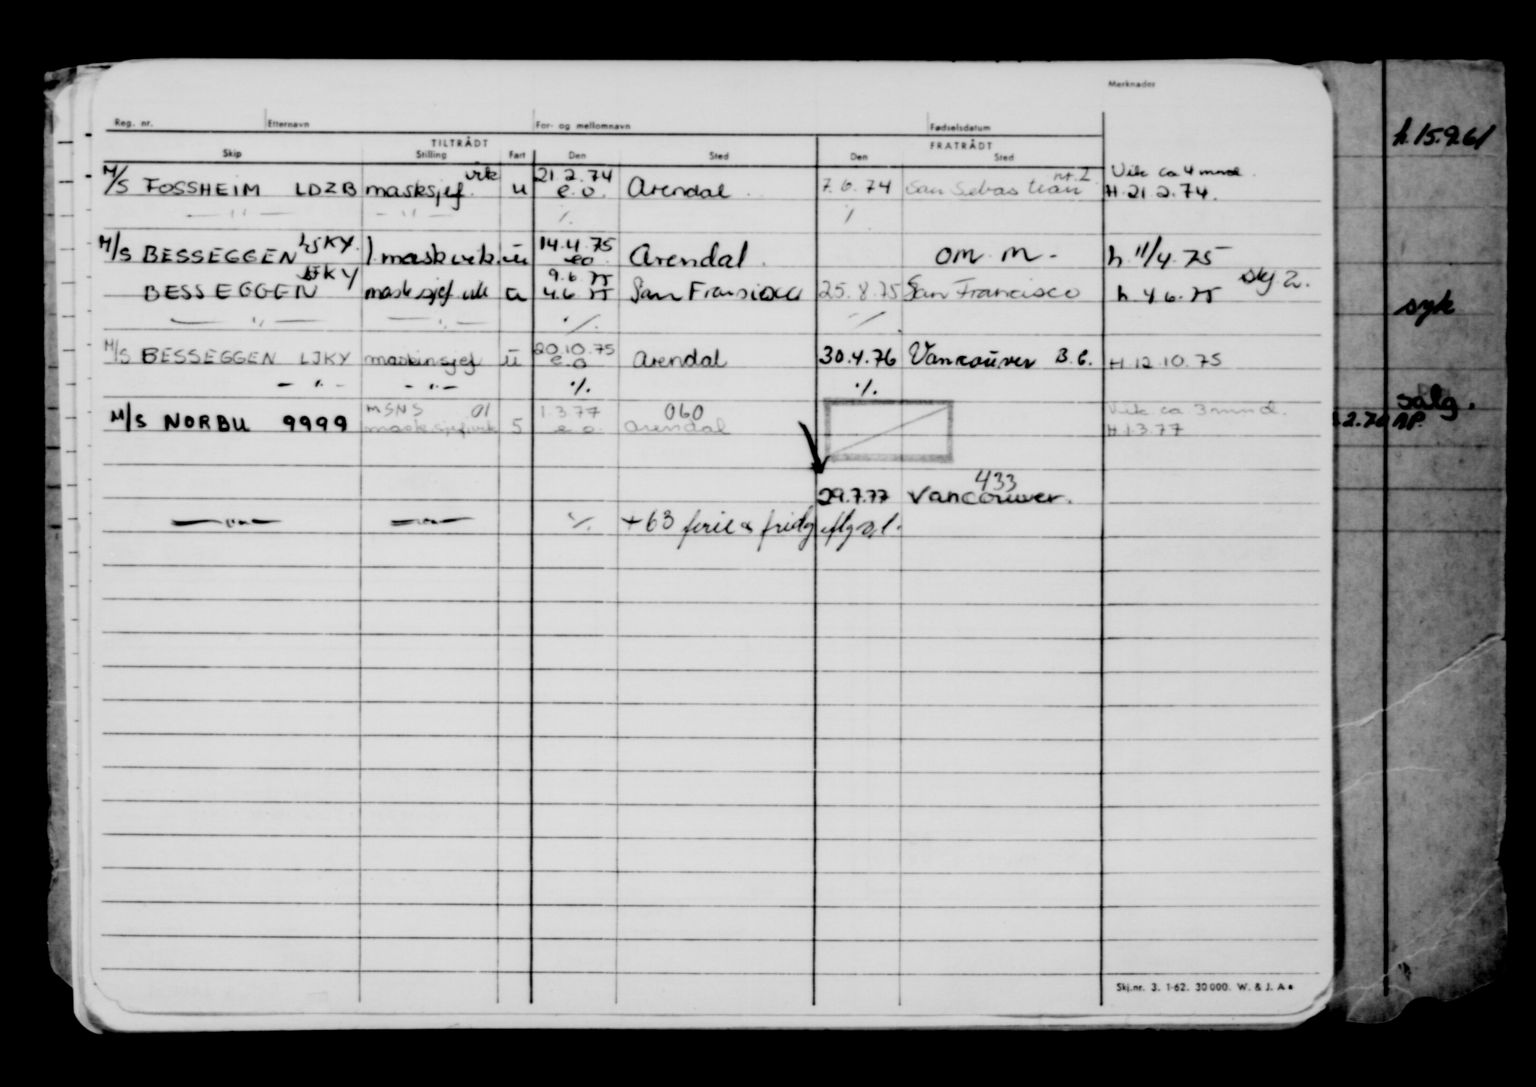 Merknader
Reg. nr. Etternavn For- og mellomnavn Fødselsdatum
TILTRÅDT FRATRÅDT
Skip Stilling Fart Den Sted Den Sted
vik 21.2.74 nr. 2 Vik ca 4 mnd.
M/S FOSSHEIM LDZB masksjef. u e.o. Arendal 7.6.74 San Sebastian H 21.2.74.
— " — — " — %
M/S BESSEGGEN LJKY. 1. mask vik. u 14.4.75 e.o Arendal. om. m. - h. 11/4.75
9.6.75 skj 2.
BESSEGGEN LJKY masksjef vik u 4.6.75 San Fransisco 25.8.75 San Francisco h. 4.6.75
— " — — " — % %
20.10.75
M/S BESSEGGEN LJKY maskinsjef u e.o Arendal 30.4.76 Vancouver B.C. H 12.10.75
— " — — " — % %
MSNS 01 1.3.77 060 Vik ca. 3 mnd.
M/S NORBU 9999 masksjef.vik 5 e.o. Arendal H 1.3.77
433
29.7.77 Vancouver.
— " — — " — % +63 ferie & fridg
h. 15.9.61
syk
salg.
2.70 AP.
Skj.nr. 3. 1-62. 30000. W. & J. A